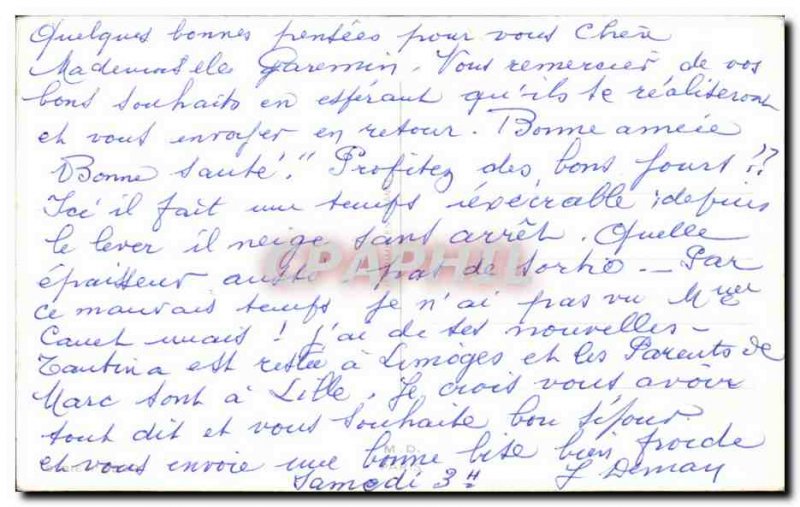 Quelques bonnes pensées pour vous Chère
Mademoiselle Garemin. Vous remercier de vos
bons souhaits en espérant qu'ils se réaliseront
et vous envoyer en retour. Bonne année
Bonne santé." Profitez des bons jours !?
Ici il fait une temps exécrable ; depuis
le lever il neige sans arrêt. Quelle
épaisseur aussi pas de sortie. - Par
ce mauvais temps je n'ai pas vu Mme
Canet mais ! j'ai de ses nouvelles -
Tantina est restée à Limoges et les Parents de
Marc sont à Lille. Je crois vous avoir
tout dit et vous souhaite bon séjour.
et vous envoie une bonne bise bien froide
Samedi 3 H J Deman
CPAPHIL
M D